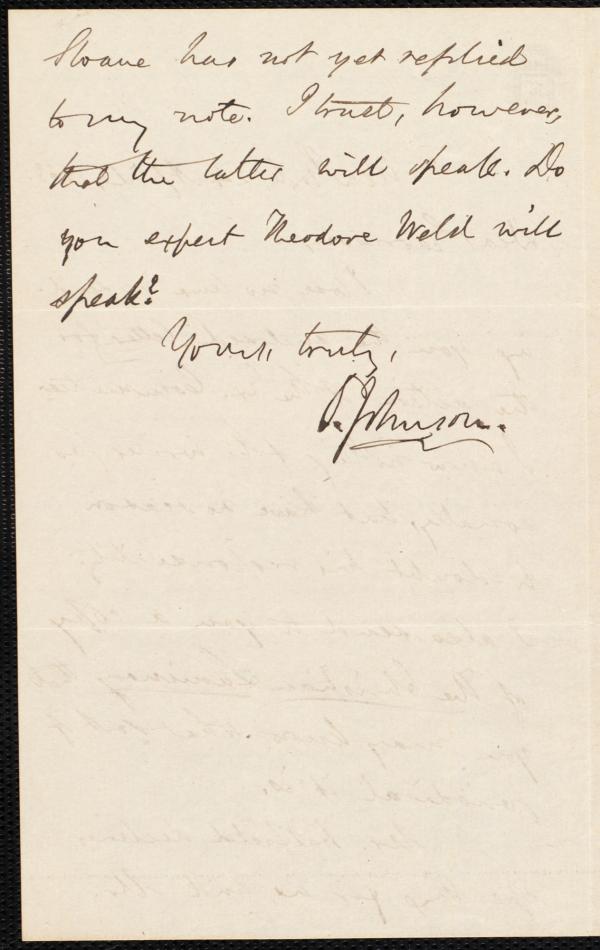 Sloane has not yet replied
to my note. I trust, however,
that the latter will speak. Do
you expect Theodore Weld will
speak?
Yours truly,
O. Johnson.